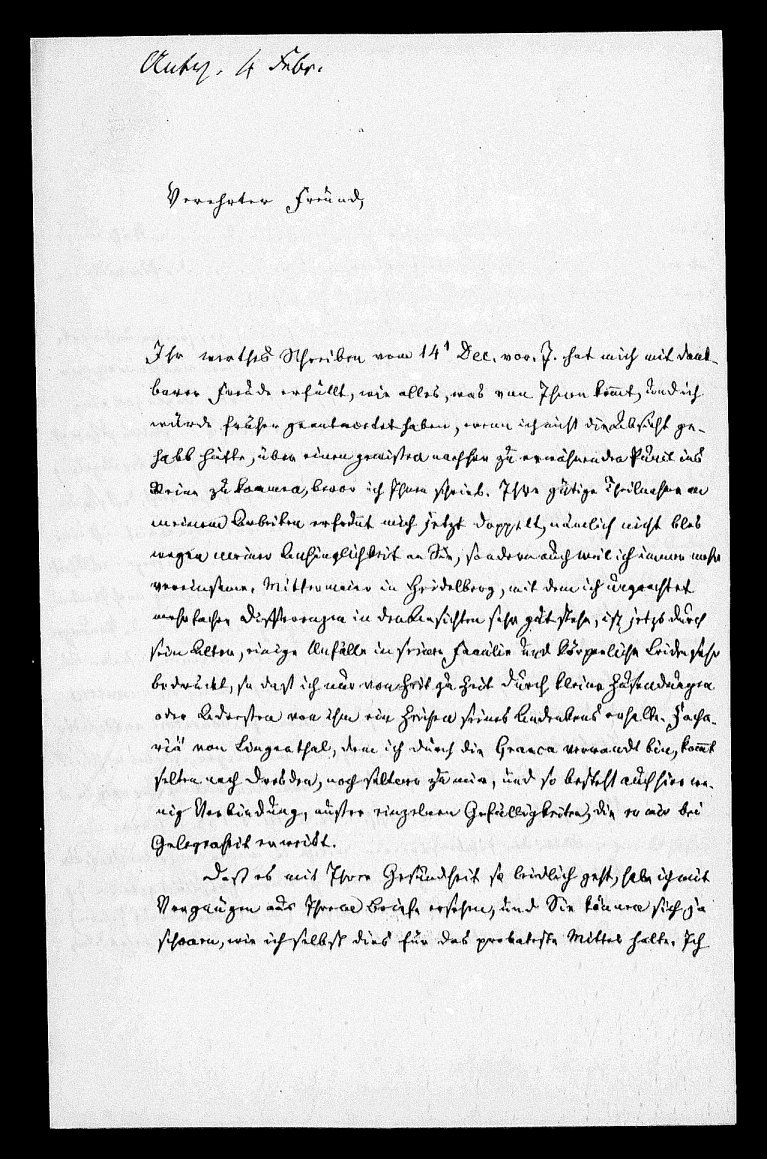 Antw. 4 Febr.
Verehrter Freund,
Ihr werthes Schreiben vom 14t Dec. vor. J. hat mich mit dank-
barer Freude erfüllt, wie alles, was von Ihnen kom̄t, und ich
würde früher geantwortet haben, wenn ich nicht die Absicht ge-
habt hätte, über einen gewissen nachher zu erwähnenden Punct ins
Reine zu kommen, bevor ich Ihnen schrieb. Ihre gütige Theilnahme an
meinen Arbeiten erfreut mich jetzt doppelt, nämlich nicht blos
wegen meiner Anhänglichkeit an Sie, sondern auch weil ich immer mehr
vereinsame. Mittermaier in Heidelberg, mit dem ich ungeachtet
mehrfacher Differenzen in den Ansichten sehr gut stehe, ist jetzt durch
sein Alter, einige Unfälle in seiner Familie und körperliche Leiden sehr
bedrückt, so daß ich nur von Zeit zu Zeit durch kleine Zusendungen
oder Adressen von ihm ein Zeichen seines Andenkens erhalte. Zacha-
riä von Lingenthal, dem ich durch die Graeca verwandt bin, kom̄t
selten nach Dresden, noch seltener zu mir, und so besteht auch hier we-
nig Verbindung, außer einzelnen Gefälligkeiten, die er mir bei
Gelegenheit erweist.
Daß es mit Ihrer Gesundheit so leidlich geht, habe ich mit
Vergnügen aus Ihrem Briefe ersehen, und Sie können sich ja
schonen, wie ich selbst dies für das probateste Mittel halte. Ich